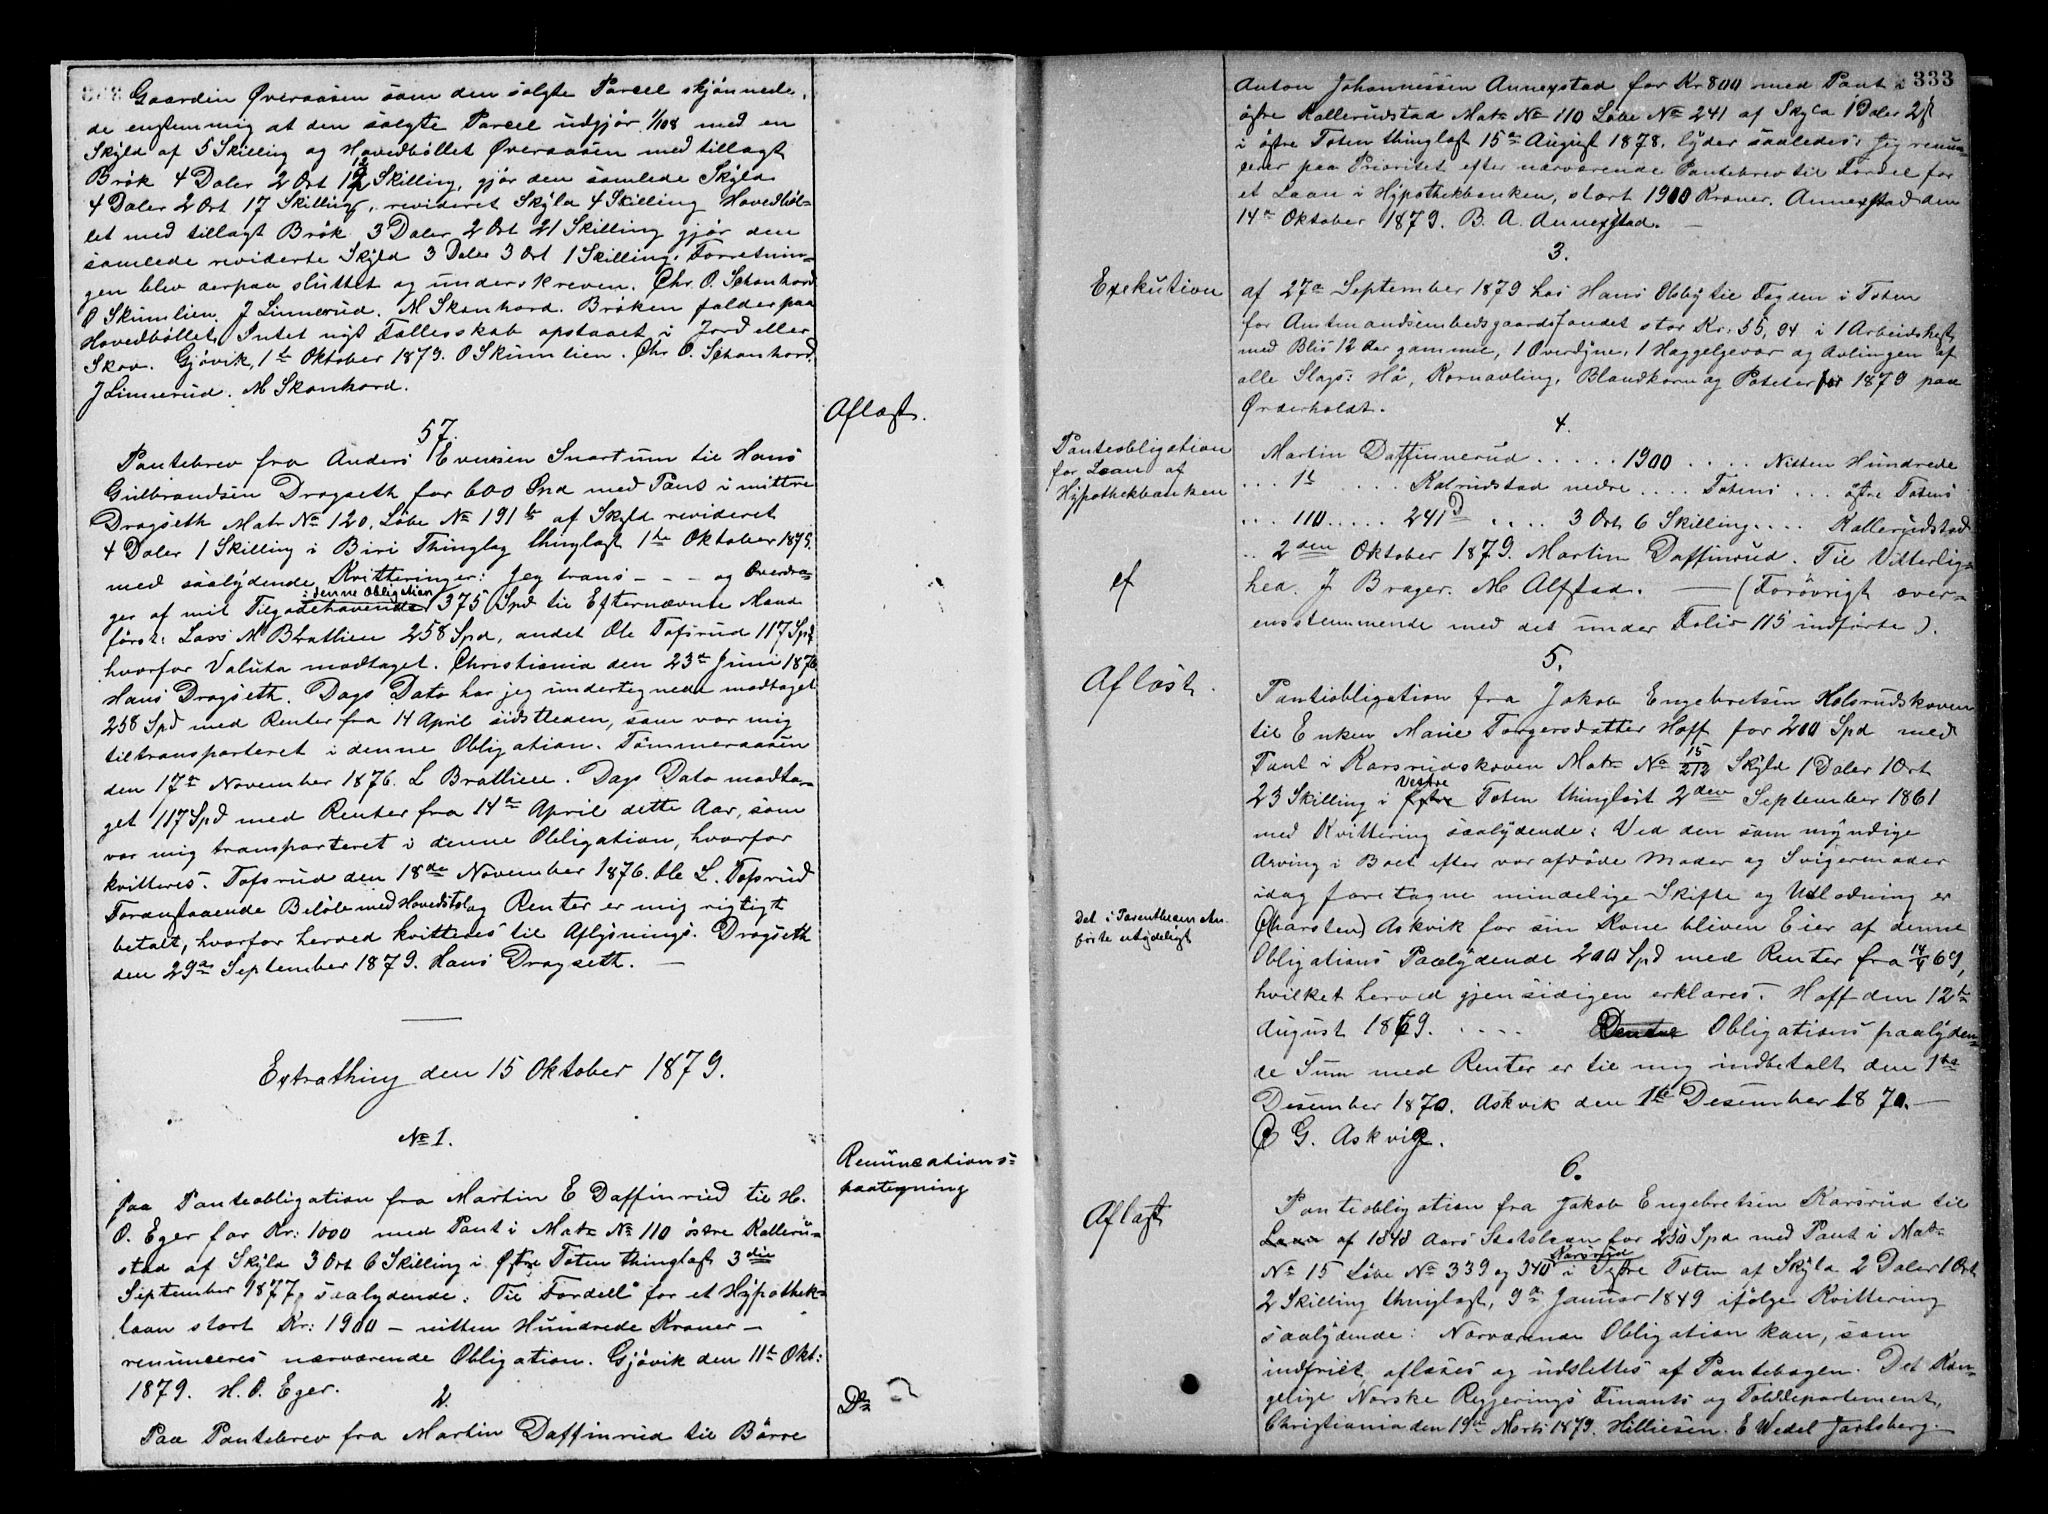 Gaarden Øveraasen som den solgte Parcel skjønnede
de enstemmig at den solgte Parcel udgjør 1/108 med en
Skyld af 5 Skilling og Hovedbøllet Øveraasen med tillagt
Brøk 4 Daler 2 Ort 12 Skilling, gjør den samlede Skyld
4 Daler 2 Ort 17 Skilling, revideret Skyld 4 Skilling Hovedbøl-
let med tillagt Brøk 3 Daler 2 Ort 21 Skilling gjør den
samlede reviderte Skyld 3 Daler 3 Ort 1 Skilling. Forretnin-
gen blev derpaa sluttet og underskreven. Chr. O. Skonhord
O Skumlien. J Linnerud. M Skonhord. Brøken falder paa
Hovedbøllet. Intet nyt Fællesskab opstaaet i Jord eller
Skov. Gjøvik, 1te Oktober 1879. O Skumlien. Chr. O. Skonhord.
J Linnerud. M Skonhord.
57.
Aflæst.
Pantebrev fra Anders Evensen Snartum til Hans
Gulbrandsen Dragseth for 600 Spd med Pant i mittre
Dragseth Matr No 120, Løbe No 191b af Skyld revideret
4 Daler 1 Skilling i Biri Thinglag thinglæst 1te Oktober 1875.
med saalydende Kvitteringer: Jeg trans - - - og Overdra-
: denne Obligation
ger af mit Tilgodehavende 375 Spd til Efternævnte Mænd
først: Lars M Brathlien 258 Spd, andet Ole Tofsrud 117 Spd
hvorfor Valuta modtaget. Christiania den 23de Juni 1876.
Hans Dragseth. Dags Dato har jeg undertegnede modtaget
258 Spd med Renter fra 14 April sidstleden, som var mig
tiltransporteret i denne Obligation. Tømmeraasen
den 17de November 1876. L Brathlien. Dags Dato modta-
get 117 Spd med Renter fra 14de April dette Aar, som
var mig transporteret i denne Obligation, hvorfor
kvitteres. Tofsrud den 18de November 1876. Ole L. Tofsrud
Foranstaaende Beløb med Hovedstol og Renter er mig rigtigt
betalt, hvorfor herved kvitteres til Aflysning. Dragseth
den 29de September 1879. Hans Dragseth. —
Extrathing den 15 Oktober 1879.
No 1.
Renuncations-
paategning
Paa Panteobligation fra Martin E Daffinrud til H.
O. Eger for Kr: 1000 med Pant i Matr No 110 østre Kalleru-
stad af Skyld 3 Ort 6 Skilling i Østre Toten thinglæst 3die
September 1877, saalydende: Til Fordell for et Hypothek-
laan stort Kr: 1900 - nitten Hundrede Kroner -
renunceres nærværende Obligation. Gjøvik den 11te Okt:
1879. H. O. Eger.
2.
Do
Paa Pantebrev fra Martin Daffinrud til Børre
333
Anton Johannessen Annexstad for Kr 800 med Pant i
østre Kallerudstad Matr No 110 Løbe No 241 af Skyld 1 Daler 2
i østre Toten thinglæst 15de August 1878, lyder saaledes: Jeg renun-
cerer paa Prioritet efter nærværende Pantebrev til Fordel for
et Laan i Hypothekbanken, stort 1900 Kroner. Annexstad den
14de Oktober 1879. B. A. Annexstad. —
3.
Exekution
af 27de September 1879 hos Hans Obbÿ til Fogden i Toten
for Amtmandsembedsgaardsfondet stor Kr: 55,94 i 1 Arbeidshest
med Blis 12 Aar gammel, 1 Overdyne, 1 Haggelgevær og Avlingen af
alle Slags: Hø, Kornavling, Blandkorn og Poteter for 1879 paa
Ørderholdt.
4.
Panteobligation
for Laan af
Hypothekbanken
Martin Daffinnerud . . . . . 1900 . . . . . Nitten Hundrede
. . . 1t . . . . Kalrudstad nedre . . . . Totens . . . østre Totens
. . . 110 . . . . . 241d . . . . . 3 Ort 6 Skilling . . . . Kallerudstad
. . 2den Oktober 1879. Martin Daffinrud. Til Vitterlig-
ef
hed. J Brager. M Alfstad. — (Forøvrigt over-
ensstemmende med det under Folio 115 indførte).
5.
Afløst.
Pantiobligation fra Jakob Engebretsen Holsrudskoven
til Enken Marie Torgersdatter Hoff for 200 Spd med
Pant i Karsrudskoven Matr No 15/212 Skyld 1 Daler 1 Ort
Vestre
23 Skilling i Østre Toten thinglæst 2den September 1861
med Kvittering saalydende: Ved den som myndige
Arving i Boet efter vor afdøde Moder og Svigermoder
idag foretagne mindelige Skifte og Udlodning er
Det i Parenthesen An-
førte utydeligt
(Charsten) Askvik for sin Kone bliven Eier af denne
Obligations Paalydende 200 Spd med Renter fra 14/4 69,
hvilket herved gjensidigen erklæres. Hoff den 12te
August 1869. . . . . Obligations paalyden-
de Sum med Renter er til mig indbetalt den 1te
Desember 1870. Askvik den 1te Desember 1870. —
C G. Askvig.
6.
Aflæst
Panteobligation fra Jakob Engebretsen Karsrud til
Laan af 1848 Aars Statslaan for 250 Spd med Pant i Matr
Karsrud
No 15 Løbe No 339 og 340 i Vestre Toten af Skyld 2 Daler 1 Ort
2 Skilling thinglæst, 9de Januar 1849 ifølge Kvittering
saalydende: Nærværende Obligation kan, som
indfriet, aflæses og udslettes af Pantebogen. Det Kon-
gelige Norske Regjerings Finants og Tolddepartement,
Christiania den 19de Marts 1879. Hilliesen. E Wedel Jarlsberg. —